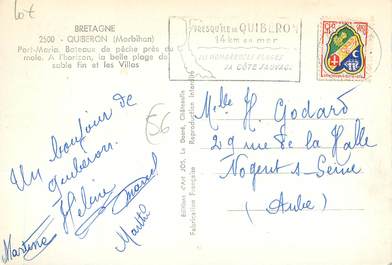 Lot
BRETAGNE
2500 - QUIBERON (Morbihan)
Port-Maria. Bateaux de pêche près du
mole. A l'horizon, la belle plage de
sable fin et les Villas
PRESQU'ILE DE QUIBERON
14 km en mer
SES NOMBREUSES PLAGES
SA CÔTE SAUVAGE
56
Un bonjour de
Quiberon.
Hélène
Martine
Marcel
Marthe
Editions d'Art JOS, Le Doaré, Châteaulin
Fabrication Française
Reproduction Interdite
Melle H. Godard
29 rue de la Halle
Nogent s- Seine
(Aube)